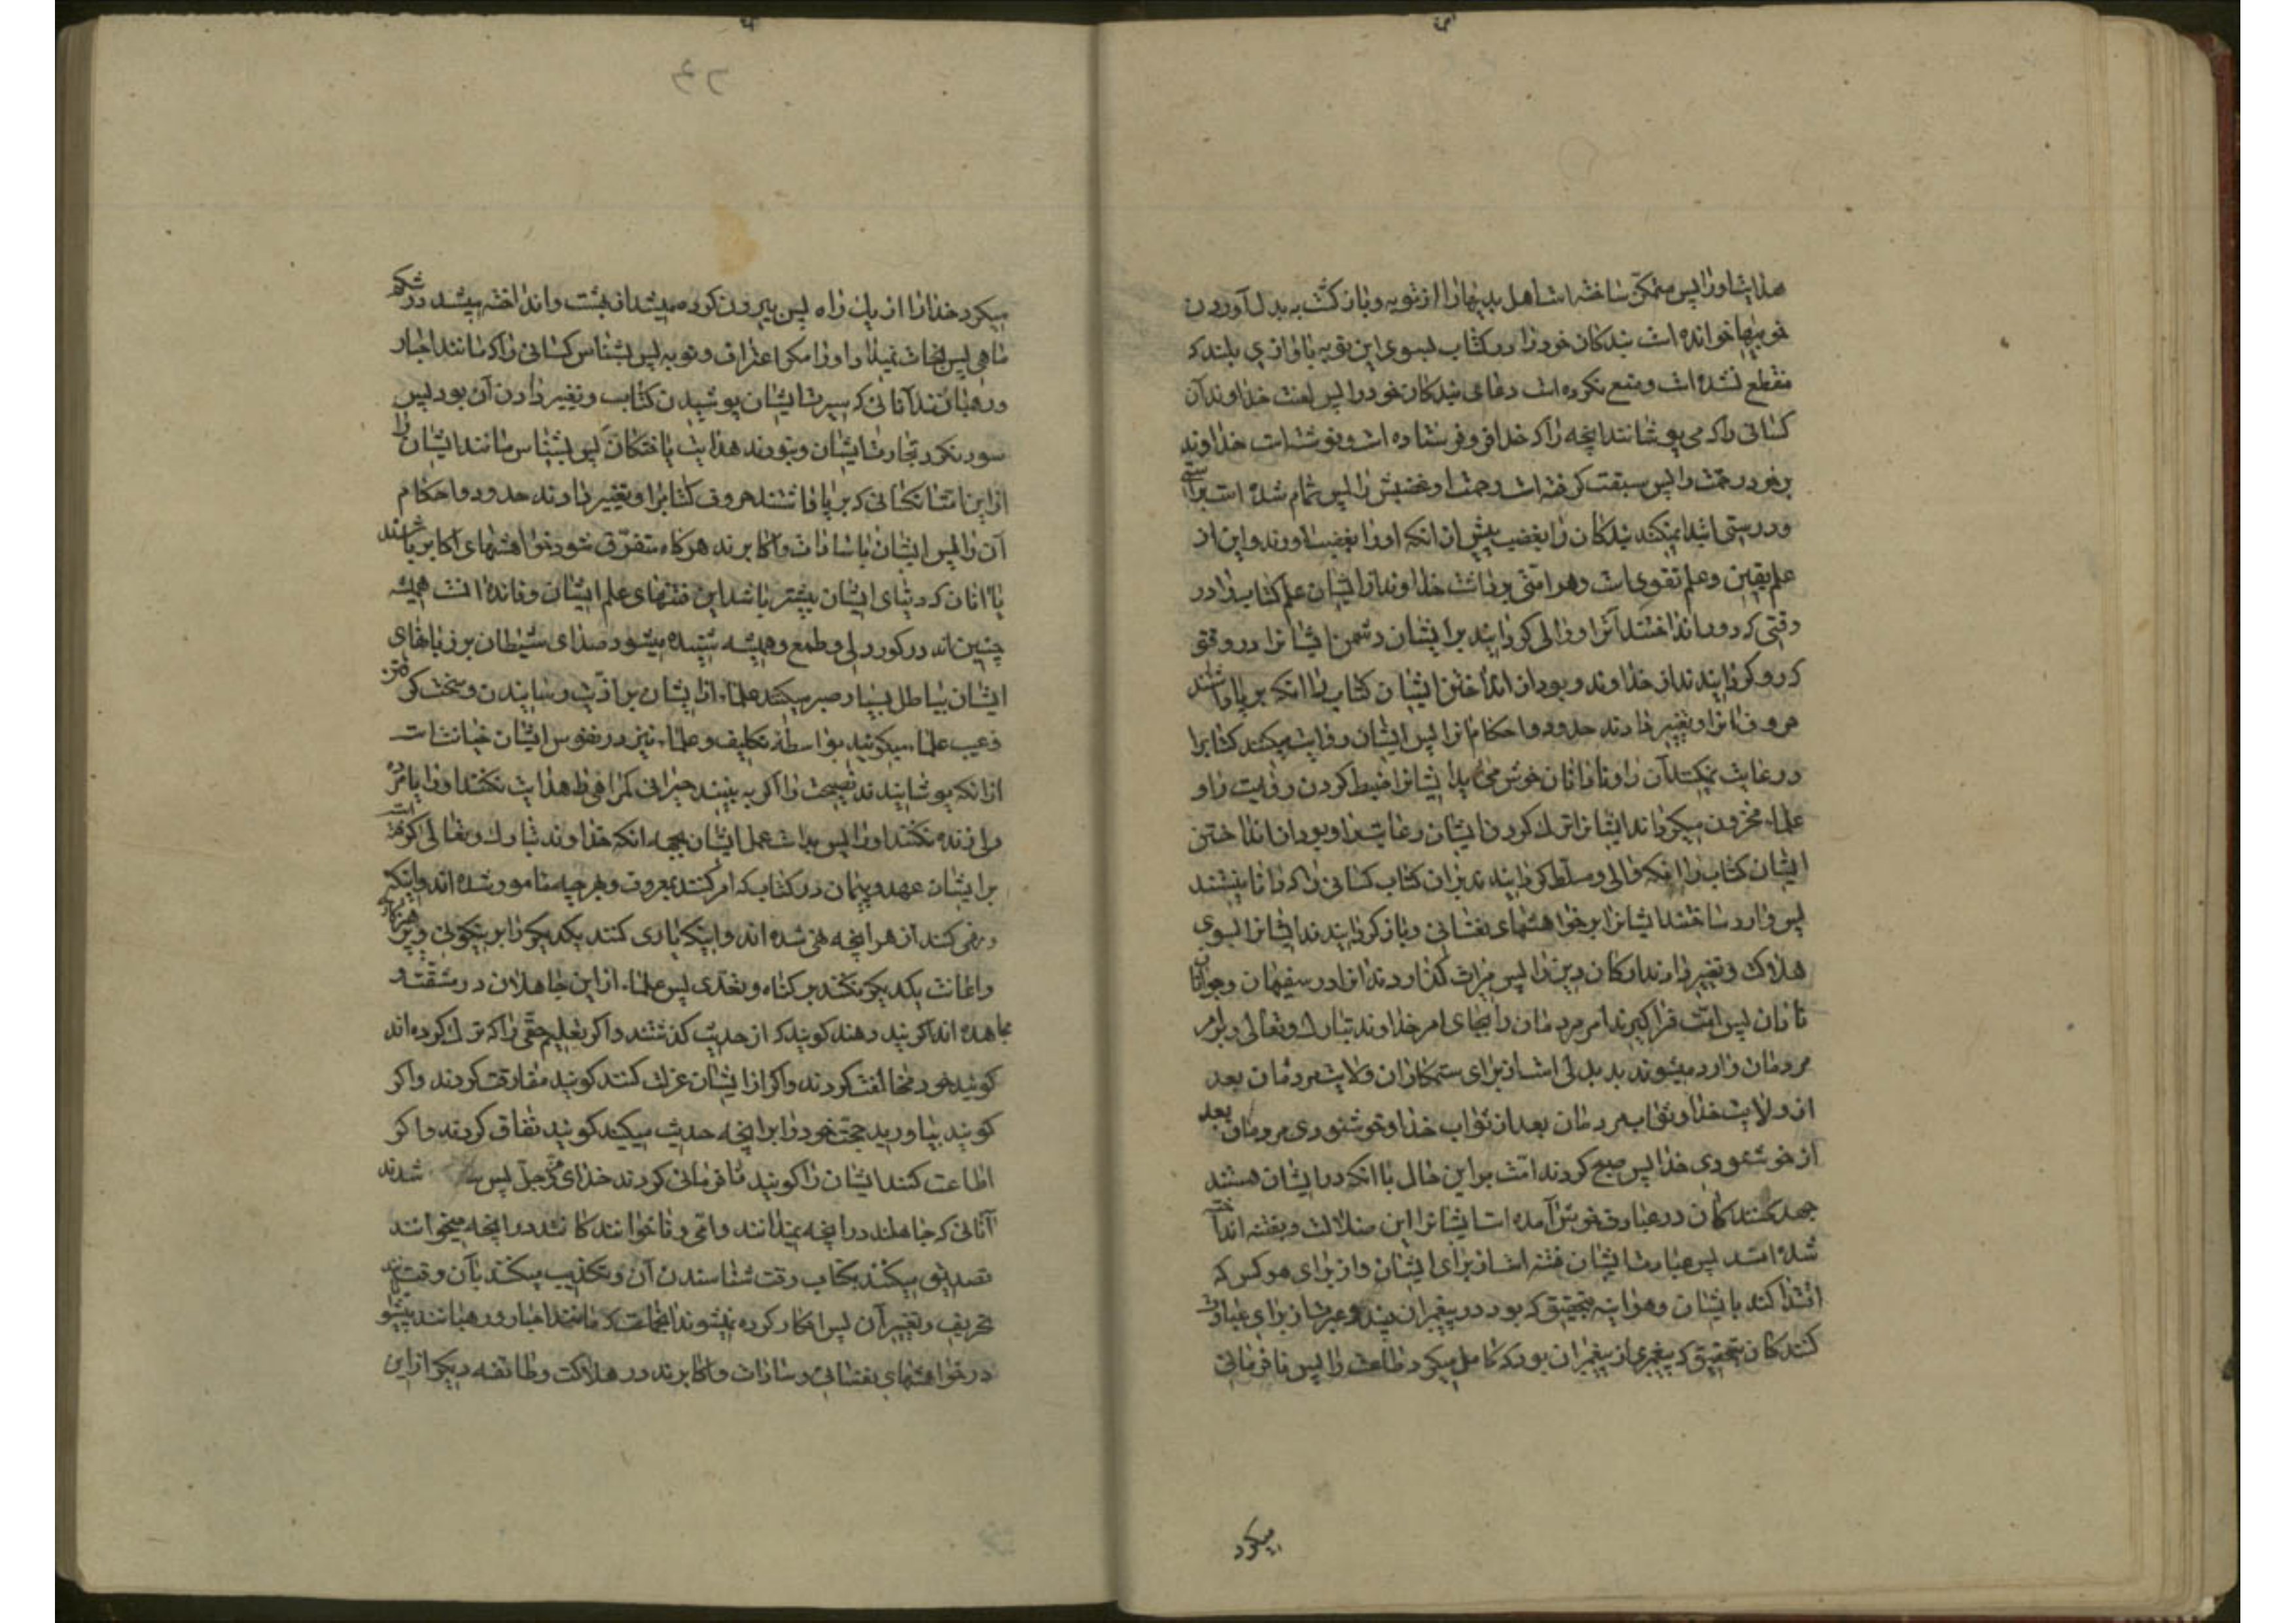 هدایت او را پس متمکن ساخته است اهل بدیها را از توبه و بازگشت به بدل آوردن
خوبیها خوانده است بندکان خود را در کتاب بسوی این توبه باوازی بلند که
منقطع نشده است و منع نکرده است دعای بندکان خود را پس لعنت خداوند آن
کسانی را که می پوشانند آنچه را که خدا فرو فرستاده است و نوشته است خداوند
بر خود رحمت را پس سبقت کرفته است رحمت او غضبش را پس تمام شده است براستی
و درستی ابتدا نمیکند بندکان را بغضب پیش از انکه او را بغضب آورند و این از
علم یقین و علم تقوی است و هر امتی برداشت خداوند از ایشان علم کتاب را در
وقتی که دور انداختند آنرا و والی کردانید بر ایشان دشمن ایشانرا در وقتی
که رو کردانیدند از خداوند و بود از انداختن ایشان کتاب را انکه بر پا داشتند
حروف آنرا و تغییر دادند حدود و احکام آنرا پس ایشان روایت میکنند کتابرا
و رعایت نمیکنند آن را و نادانان خوش می آید ایشانرا ضبط کردن روایت را و
علماء محزون میکرداند ایشانرا ترک کردن ایشان رعایت را و بود از انداختن
ایشان کتاب را انکه والی و مسلط کردانیدند بر آن کتاب کسانی را که دانا نیستند
پس وارد ساختند ایشانرا بر خواهشهای نفسانی و باز کردانیدند ایشانرا بسوی
هلاک و تغییر دادند ارکان دین را پس میراث گذاردند آنرا در سفیهان و جوانان
نادان پس امت فرا کیرند امر مردمان را بجای امر خداوند تبارک و تعالی و بر امر
مردمان وارد میشوند بد بدلی است از برای ستمکاران ولایت مردمان بعد
از ولایت خدا و ثواب مردمان بعد از ثواب خدا و خوشنودی مردمان بعد
از خوشنودی خدا پس صبح کردند امت بر این حال با انکه در ایشان هستند
جهد کنندکان در عبادت خوش آمده است ایشانرا این ضلالت و بفتنه انداخته
شده است پس عبادت ایشان فتنه است از برای ایشان و از برای هر کس که
اقتدا کند بایشان و هر اینه بتحقیق که بود در پیغمبران پند و عبرت از برای عبادت
کنندکان بتحقیق که پیغمبری از پیغمبران بود که کامل میکرد طاعت را پس نافرمانی
میکرد
میکرد خدا را از یک راه پس بیرون کرده میشد از بهشت و انداخته میشد در شکم
ماهی پس نجات نمیداد او را مکر اعتراف و توبه پس بشناس کسانی را که مانند احبار
و رهبانند آنانی که سیرت ایشان پوشیدن کتاب و تغییر دادن آن بود پس
سود نکرد تجارت ایشان و نبودند هدایت یافتکان پس بشناس مانند ایشان را
از این امت آنکسانی که بر پا داشتند حروف کتابرا و تغییر دادند حدود و احکام
آن را پس ایشان با سادات و اکابرند هرکاه متفرق شود خواهشهای اکابر باشند
با آنان که دنیای ایشان بیشتر باشد این منتهای علم ایشان و فائده است همیشه
چنین اند در کور دلی و طمع و همیشه شنیده میشود صدای شیطان بر زبانهای
ایشان بباطل بسیار صبر میکنند علماء از ایشان بر اذیت رسانیدن و سخت کرفتن
و عیب علماء میکویند بواسطه تکلیف و علماء نیز در نفوس ایشان خیانت است
از انکه پوشانیدند نصیحت را اگر به بینند حیرانی کمراهی را هدایت نکنند او را یا مرده
را زنده نکنند او را پس بد است عمل ایشان بجهة انکه خداوند تبارک و تعالی کرفته است
بر ایشان عهد و پیمان در کتاب که امر کنند بمعروف و بهرچه مامور شده اند و اینکه
و نهی کنند از هر آنچه نهی شده اند و اینکه یاری کنند یکدیکر را بر نیکوئی و پرهیزکاری
و اعانت یکدیکر نکنند بر کناه و تعدی پس علماء از این جاهلان در مشقت و
مجاهده اند اکر پند دهند کویند که از حدیث گذشتند و اکر تعلیم حقی را که ترک کرده اند
کویند خود مخالفت کردند و اکر از ایشان عزلت کنند کویند مفارقت کردند و اکر
کویند بیاورید حجت خود را بر آنچه حدیث میکنید کویند نفاق کردند و اکر
اطاعت کنند ایشان را کویند نافرمانی کردند خدای عزوجل پس شدند
آنانی که جاهلند در آنچه نمیدانند و امی و ناخوانند کانند در آنچه میخوانند
تصدیق میکنند بکتاب وقت شناسندن آن و تکذیب میکنند بآن وقت
تحریف و تغییر آن پس انکار کرده نمیشوند آنجماعت که مانند احبار و رهبانند پیشوا
در خواهشهای نفسانی و سادات و اکابرند در هلاکت و طائفه دیکر از این